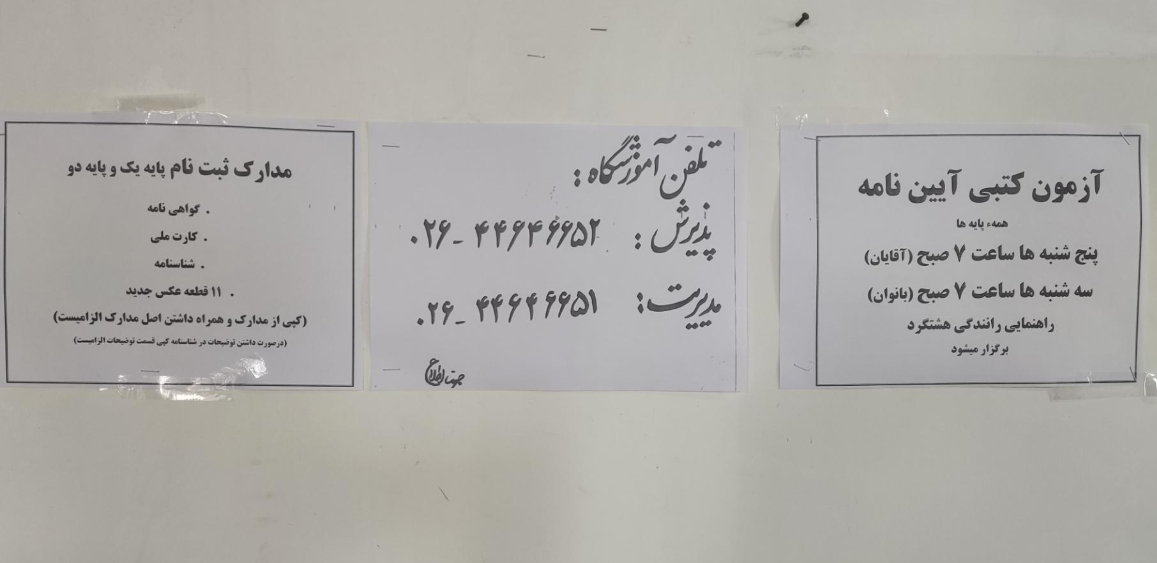 آزمون کتبی آیین نامه
همهء پایه ها
پنج شنبه ها ساعت ۷ صبح (آقایان)
سه شنبه ها ساعت ۷ صبح (بانوان)
راهنمایی رانندگی هشتگرد
برگزار میشود
تلفن آموزشگاه :
پذیرش : ۴۴۶۴۶۶۵۲ _ ۰۲۶
مدیریت : ۴۴۶۴۶۶۵۱ _ ۰۲۶
جهت اطلاع
مدارک ثبت نام پایه یک و پایه دو
. گواهی نامه
. کارت ملی
. شناسنامه
. ۱۱ قطعه عکس جدید
(کپی از مدارک و همراه داشتن اصل مدارک الزامیست)
(درصورت داشتن توضیحات در شناسنامه کپی قسمت توضیحات الزامیست)